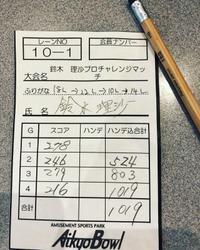 レーンNO 会員ナンバー
10-1
鈴木 理沙プロチャレンジマッチ
大会名
ふりがな 8L→12L→10L→14L
氏名 鈴木理沙
G スコア ハンデ ハンデ込合計
1 278
2 246 524
3 279 803
4 216 1019
合計 1019
AMUSEMENT SPORTS PARK
Aikyo Bowl